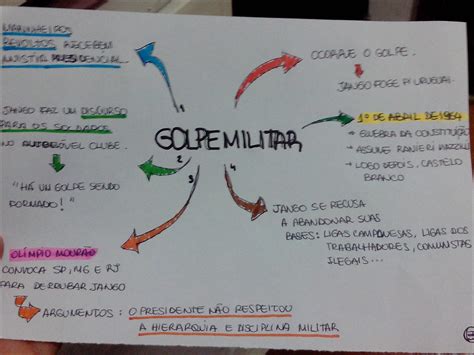 MARINHEIROS
REVOLTOS RECEBEM
ANISTIA PRESIDENCIAL.
1
JANGO FAZ UM DISCURSO
PARA OS SOLDADOS
NO AUTOMÓVEL CLUBE.
2
"HÁ UM GOLPE SENDO
FORMADO!"
GOLPE MILITAR
3
OLÍMPIO MOURÃO
CONVOCA SP, MG E RJ
PARA DERRUBAR JANGO
ARGUMENTOS: O PRESIDENTE NÃO RESPEITOU
A HIERARQUIA E DISCIPLINA MILITAR
4
JANGO SE RECUSA
A ABANDONAR SUAS
BASES: LIGAS CAMPONESAS, LIGAS DOS
TRABALHADORES, COMUNISTAS
ILEGAIS...
OCORRE O GOLPE.
JANGO FOGE P/ URUGUAI.
1º DE ABRIL DE 1964
QUEBRA DA CONSTITUIÇÃO
ASSUME RANIERI MAZZILLI
LOGO DEPOIS, CASTELO
BRANCO